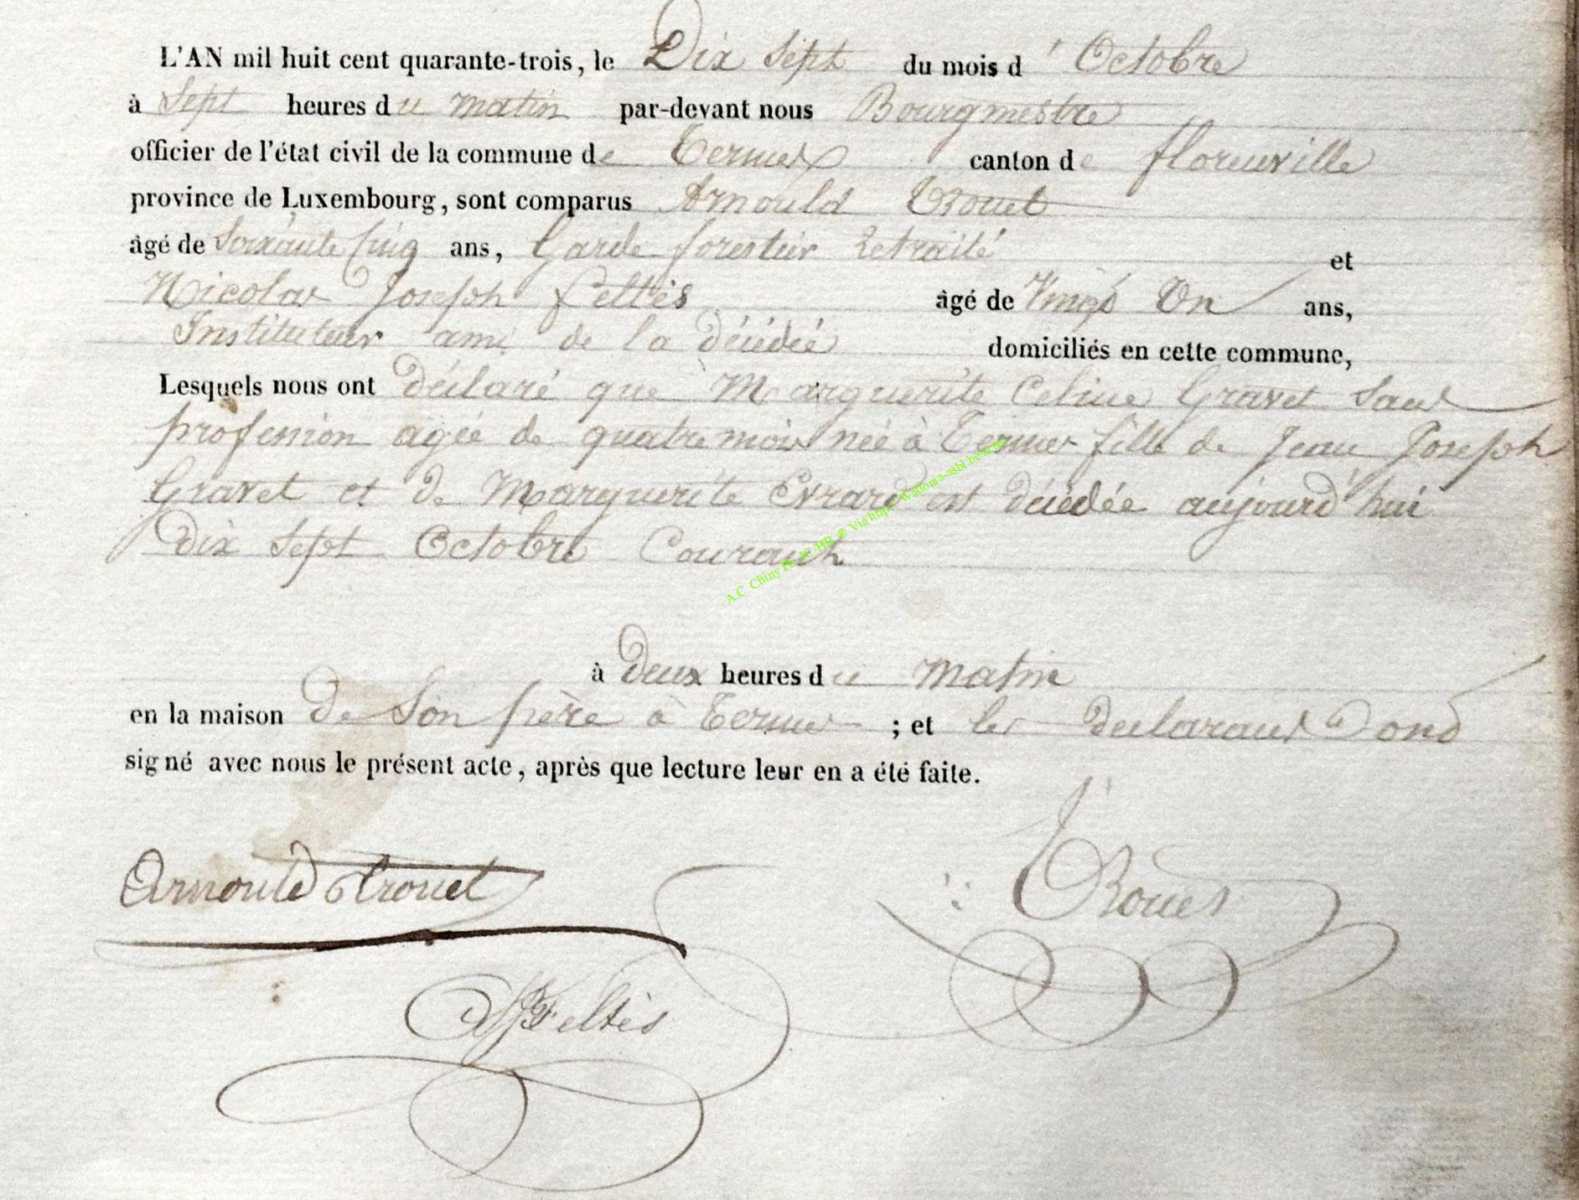 L'AN mil huit cent quarante-trois, le Dix Sept du mois d'Octobre
à Sept heures du matin par-devant nous Bourgmestre
officier de l'état civil de la commune de Termes canton de florenville
province de Luxembourg, sont comparus Arnould Trouet
âgé de Soixante Cinq ans, Garde forestier Retraité et
Nicolas Joseph Feltès âgé de Vingt Un ans,
Instituteur ami de la décédée domiciliés en cette commune,
Lesquels nous ont déclaré que Marguerite Celine Gravet Sans
profession agée de quatre mois née à Termes fille de Jean Joseph
Gravet et de Marguerite Evrard est décédée aujourd'hui
Dix Sept Octobre Courant
à Deux heures du Matin
en la maison de Son père à Termes ; et les declarants ond
signé avec nous le présent acte, après que lecture leur en a été faite.
Arnould trouet
NJFeltès